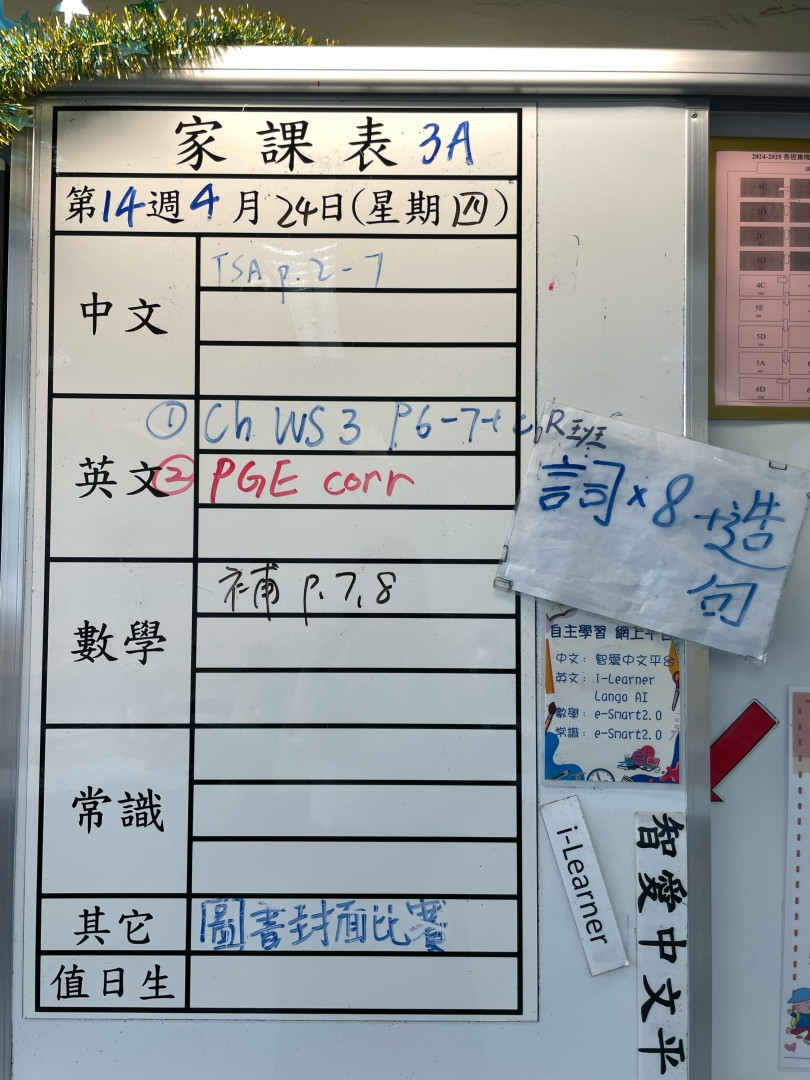 家課表 3A
第14週4月24日(星期四)
中文
TSA p.2-7
英文
① Ch WS 3 P6-7+
② PGE corr
數學
補 p.7,8
常識
其它
圖書封面比賽
值日生
R班
詞×8+造句
自主學習 網上平台
中文：智愛中文平台
英文：i-Learner
Lango AI
數學：e-Smart2.0
常識：e-Smart2.0
i-Learner
智愛中文平
2024-2025
4C
5E
5D
5A
6D